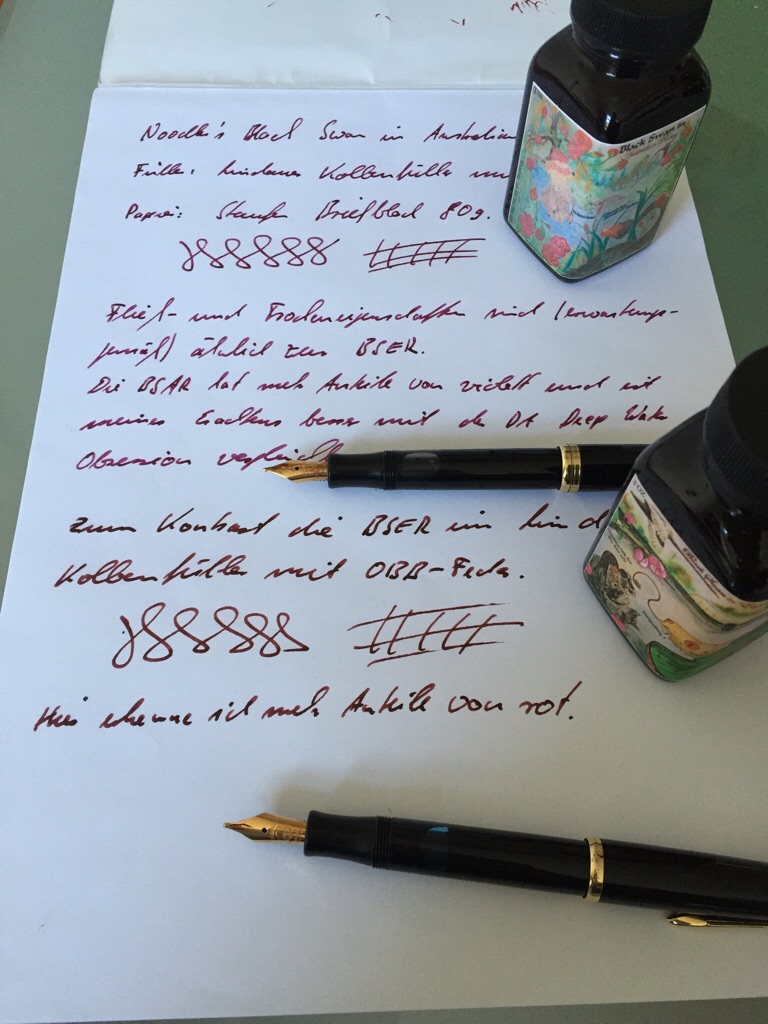 Noodler's Black Swan in Australian
Füller: Lindauer Kolbenfüller
Papier: Staufen Briefblock 80g.
Fließ- und Trockeneigenschaften sind (erwartungs-
gemäß) ähnlich zur BSER.
Die BSAR hat mehr Anteile von violett und ist
meines Erachtens besser mit der DA Deep Water
Obsession
Zum Kontrast die BSER im
Kolbenfüller mit OBB-Feder.
Hier erkenne ich mehr Anteile von rot.
Black Swan in